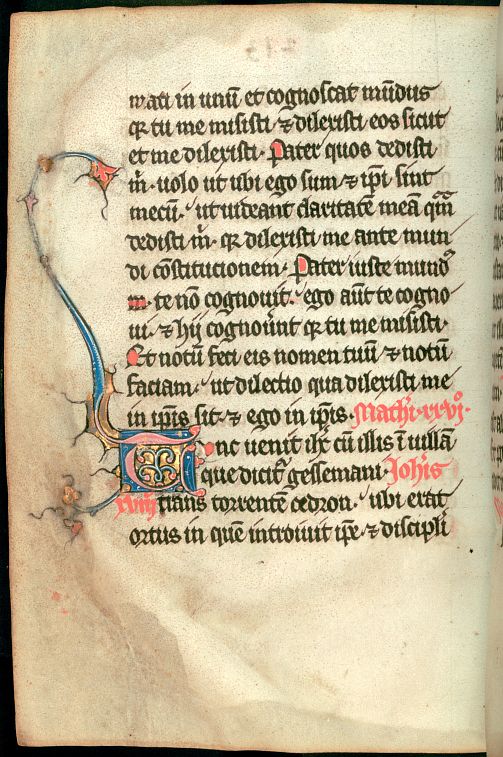 mati in unū et cognoscat mūdus
qꝛ tu me misisti ⁊ dilexisti eos sicut
et me dilexisti. Pater quos dedisti
m̄. uolo ut ubi ego sum ⁊ ip̄i sint
mecū. ut uideant claritatē meā qm̄
dedisti m̄. qꝛ dilexisti me ante mun
di cōstitucionem. Pater iuste mundꝰ
te nō cognouit. ego aūt te cogno
ui. ⁊ hij cognouer̄unt qꝛ tu me misisti.
Et notū feci eis nomen tuū ⁊ notū
faciam. ut dilectio qua dilexisti me
in ip̄is sit. ⁊ ego in ip̄is. Mathi. xxvj.
Tunc uenit ih̄c cū illis ī uillā
que dicit᷑ gessemani. Joh̄is
xviij trans torrentē cedron. ubi erat
ortus in quē introiuit ip̄e. ⁊ discipli